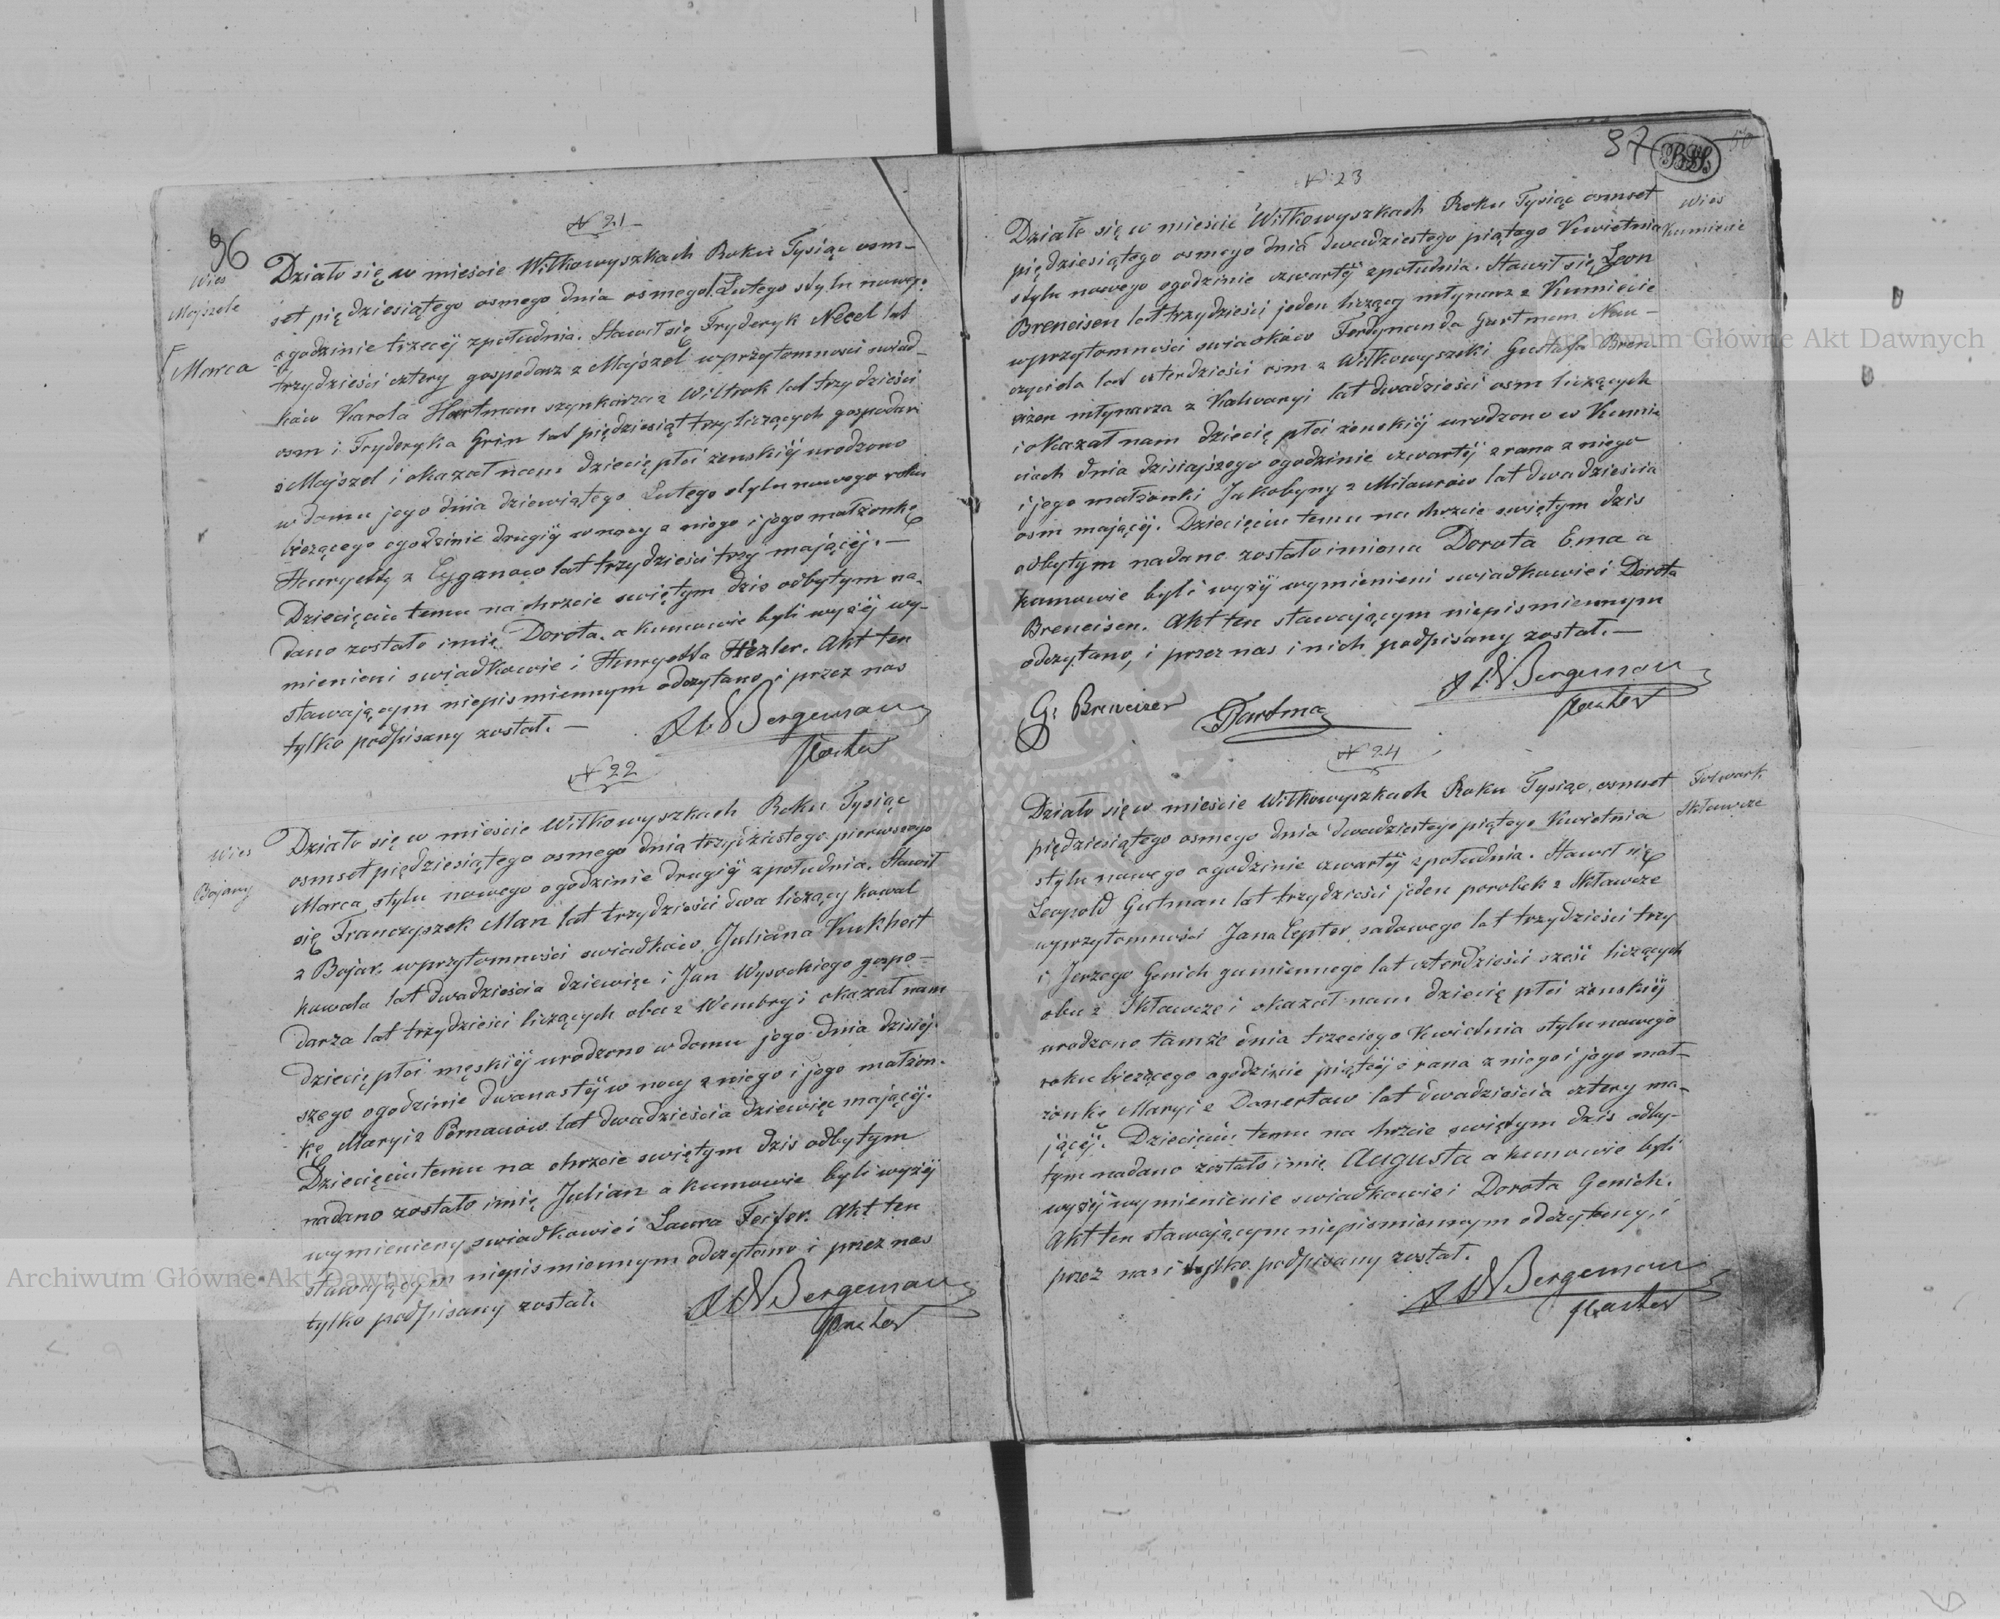 96
N 21
Wies
Majszele
Marca
Działo się w mieście Wiłkowyszkach Roku Tysiąc osm-
set pięćdziesiątego osmego dnia osmego Lutego stylu nowego
o godzinie trzeciej z południa. Stawił się Fryderyk Necel lat
trzydzieści cztery gospodarz z Majszel w przytomności świad-
ków Karola Hartman szynkarza z Wiłtrok lat trzydzieści
osm i Fryderyka Grin lat pięćdziesiąt trzy liczących gospodarz
z Majszel i okazał nam dziecię płci żenskiej urodzone
w domu jego dnia dziewiątego Lutego stylu nowego roku
bieżącego o godzinie drugiej w nocy z niego i jego małżonki
Henryetty z Cyganow lat trzydzieści trzy mającej. —
Dziecięciu temu na chrzcie swiętym dzis odbytym na-
dano zostało imię Dorota, a kumowie byli wyżej wy-
mienieni swiadkowie i Henryetta Hezler. Akt ten
stawającym niepismiennym odczytano i przez nas
tylko podpisany został. —
Bergeman
Pastor
N 22
Wies
Bojary
Działo się w mieście Wiłkowyszkach Roku Tysiąc
osmset pięćdziesiątego osmego dnia trzydziestego pierwszego
Marca stylu nowego o godzinie drugiej z południa. Stawił
się Franczyszek Man lat trzydzieści dwa liczący kowal
z Bojar, w przytomności swiadków Juliana Kukhert
kowala lat dwadzieścia dziewięc i Jan Wysockiego gospo-
darza lat trzydzieści liczących oba z Wembry i okazał nam
dziecię płci męskiej urodzone w domu jego dnia dzisiej-
szego o godzinie dwunastej w nocy z niego i jego małżon-
kę Maryi z Pernaców lat dwadzieścia dziewięc mającej.
Dziecięciu temu na chrzcie swiętym dzis odbytym
nadano zostało imię Julian a kumowie byli wyżej
wymienieny swiadkowie i Laura Feifer. Akt ten
stawającym niepismiennym odczytano i przez nas
tylko podpisany został.
Bergeman
Pastor
97
50
N 23
Wies
Kumiecie
Działo się w mieście Wiłkowyszkach Roku Tysiąc osmset
pięćdziesiątego osmego dnia dwudziestego piątego Kwietnia
stylu nowego o godzinie czwartej z południa. Stawił się Leon
Breneisen lat trzydzieści jeden liczący młynarz z Kumiecie
w przytomności swiadków Ferdynanda Gartman Nau-
czyciela lat czterdzieści osm z Wiłkowyszki Gustafa Bren
eizen młynarza z Kalwaryi lat dwadzieści osm liczących
i okazał nam dziecię płci żenskiej urodzono w Kumie
ciach dnia dzisiajszego o godzinie czwartej z rana z niego
i jego małżonki Jakobyny z Milaurów lat dwadzieścia
osm mającej. Dziecięciu temu na chrzcie swiętym dzis
odbytym nadano zostało imiona Dorota Ema a
kumowie byli wyżej wymienieni swiadkowie i Dorota
Breneisen. Akt ten stawającym niepismiennym
odczytano, i przez nas i nich podpisany został. —
Bergeman
Pastor
G. Breneizer
Hartman
N 24
Folwark
Skławcze
Działo się w mieście Wiłkowyszkach Roku Tysiąc osmset
pięćdziesiątego osmego dnia dwudziestego piątego Kwietnia
stylu nowego o godzinie czwartej z południa. Stawił się
Leopold Gutman lat trzydzieści jeden parobek z Skławcze
w przytomności Jana Cepter sadowego lat trzydzieści trzy
i Jerzego Genich gumiennego lat czterdzieści sześć liczących
obu z Skławcze i okazał nam dziecię płci żenskiej
urodzone tamże dnia trzeciego Kwietnia stylu nowego
roku bieżącego o godzinie piątej z rana z niego i jego mał-
żonkę Maryi z Donertow lat dwadzieścia cztery ma-
jącej. Dziecięciu temu na chrzcie swiętym dzis odby-
tym nadano zostało imię Augusta a kumowie byli
wyżej wymienienie swiadkowie i Dorota Genich.
Akt ten stawającym niepismiennym odczytany, i
przez nas i tylko podpisany został.
Bergeman
Pastor
Archiwum Główne Akt Dawnych
Archiwum Główne Akt Dawnych